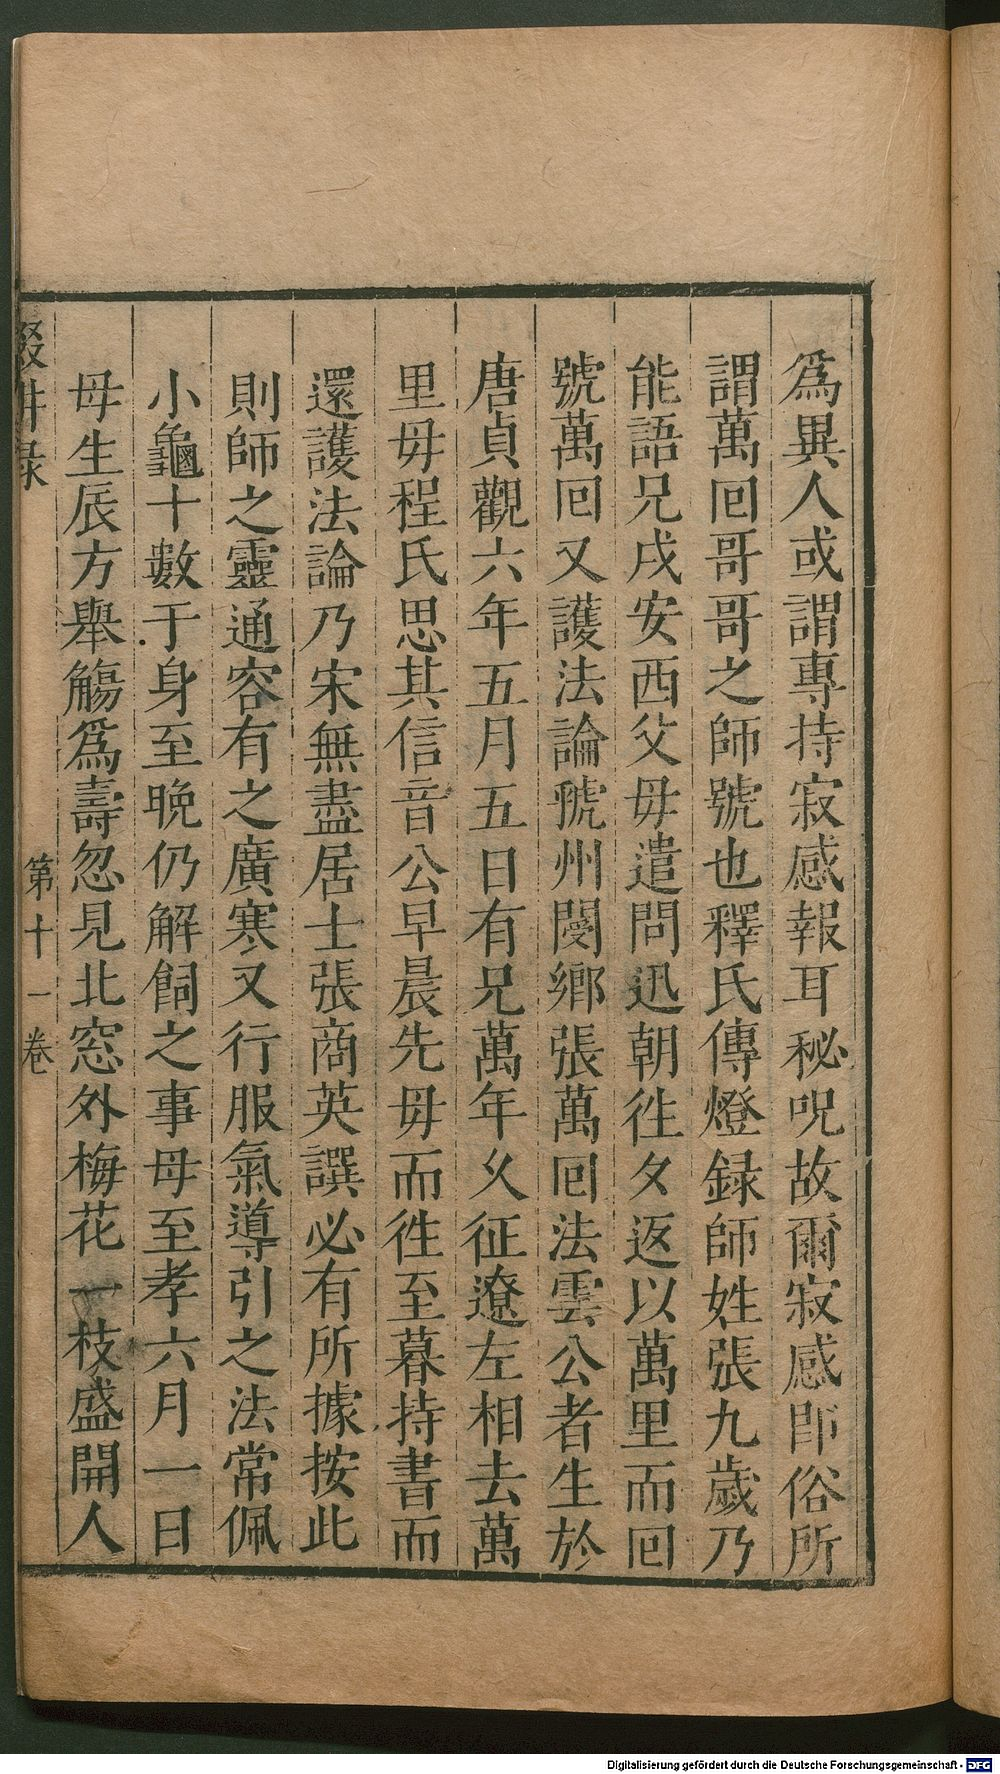 爲異人或謂專持寂感報耳秘呪故爾寂感卽俗所
謂萬回哥哥之師號也釋氏傳燈録師姓張九歲乃
能語兄戌安西父毋遣問迅朝徃夕返以萬里而回
號萬回又護法論虢州閿鄉張萬回法雲公者生於
唐貞觀六年五月五日有兄萬年乆征遼左相去萬
里毋程氏思其信音公早晨先毋而徃至暮持書而
還護法論乃宋無盡居士張商英譔必有所據按此
則師之靈通容有之廣寒又行服氣導引之法常佩
小龜十數于身至晚仍解飼之事母至孝六月一日
母生辰方舉觴爲壽忽見北窓外梅花一枝盛開人
輟畊录 第十一卷
Digitalisierung gefördert durch die Deutsche Forschungsgemeinschaft - DFG